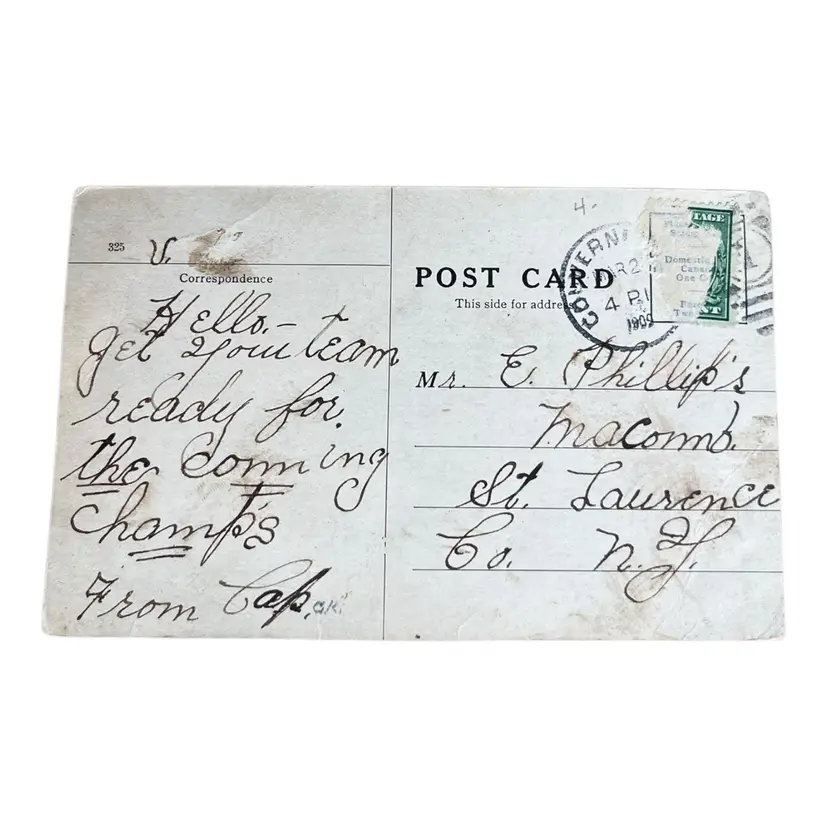 325
V.
Correspondence
Hello.—
get your team
ready for
the comming
champ's
From Cap. O.K.
4-
POST CARD
This side for address
GOUVERN
4 P
1909
TAGE
Domestic
Cana
One C
NT
Mr. E. Phillip's
Macomb.
St. Laurence
Co. N.Y.